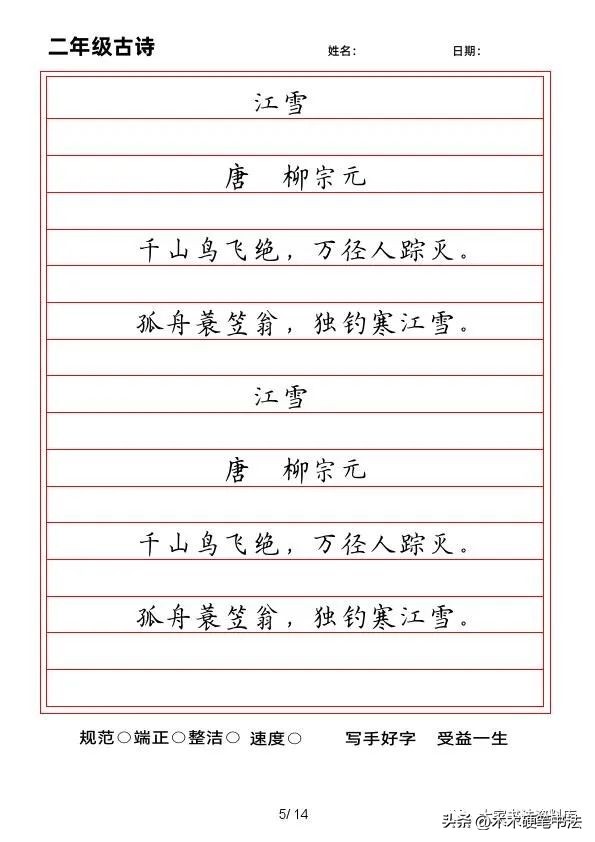 二年级古诗 姓名: 日期:
江雪
唐 柳宗元
千山鸟飞绝，万径人踪灭。
孤舟蓑笠翁，独钓寒江雪。
江雪
唐 柳宗元
千山鸟飞绝，万径人踪灭。
孤舟蓑笠翁，独钓寒江雪。
规范○端正○整洁○ 速度○ 写手好字 受益一生
5/14
头条 @木木硬笔书法